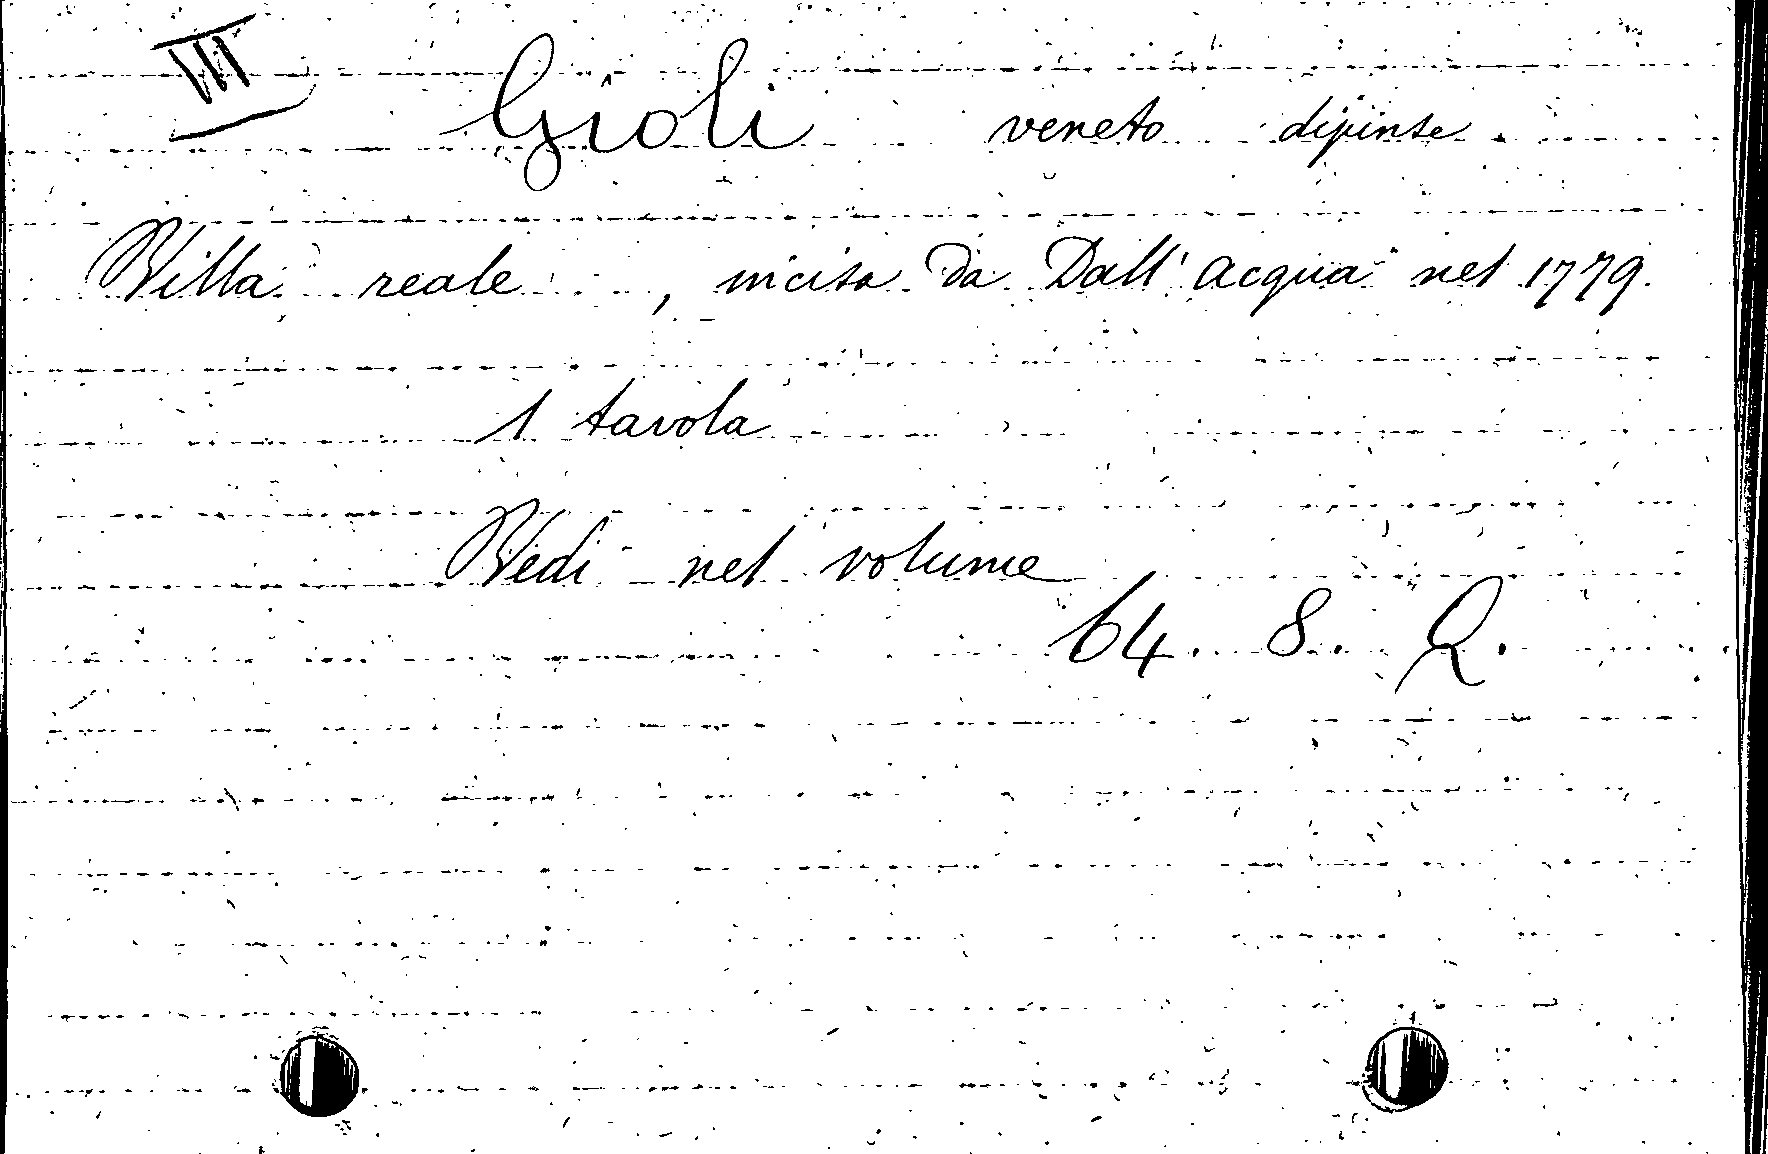 III
Gioli veneto dipinse
Villa reale, incisa da Dall'acqua nel 1779.
1 tavola
Vedi nel volume
64. 8. Q.